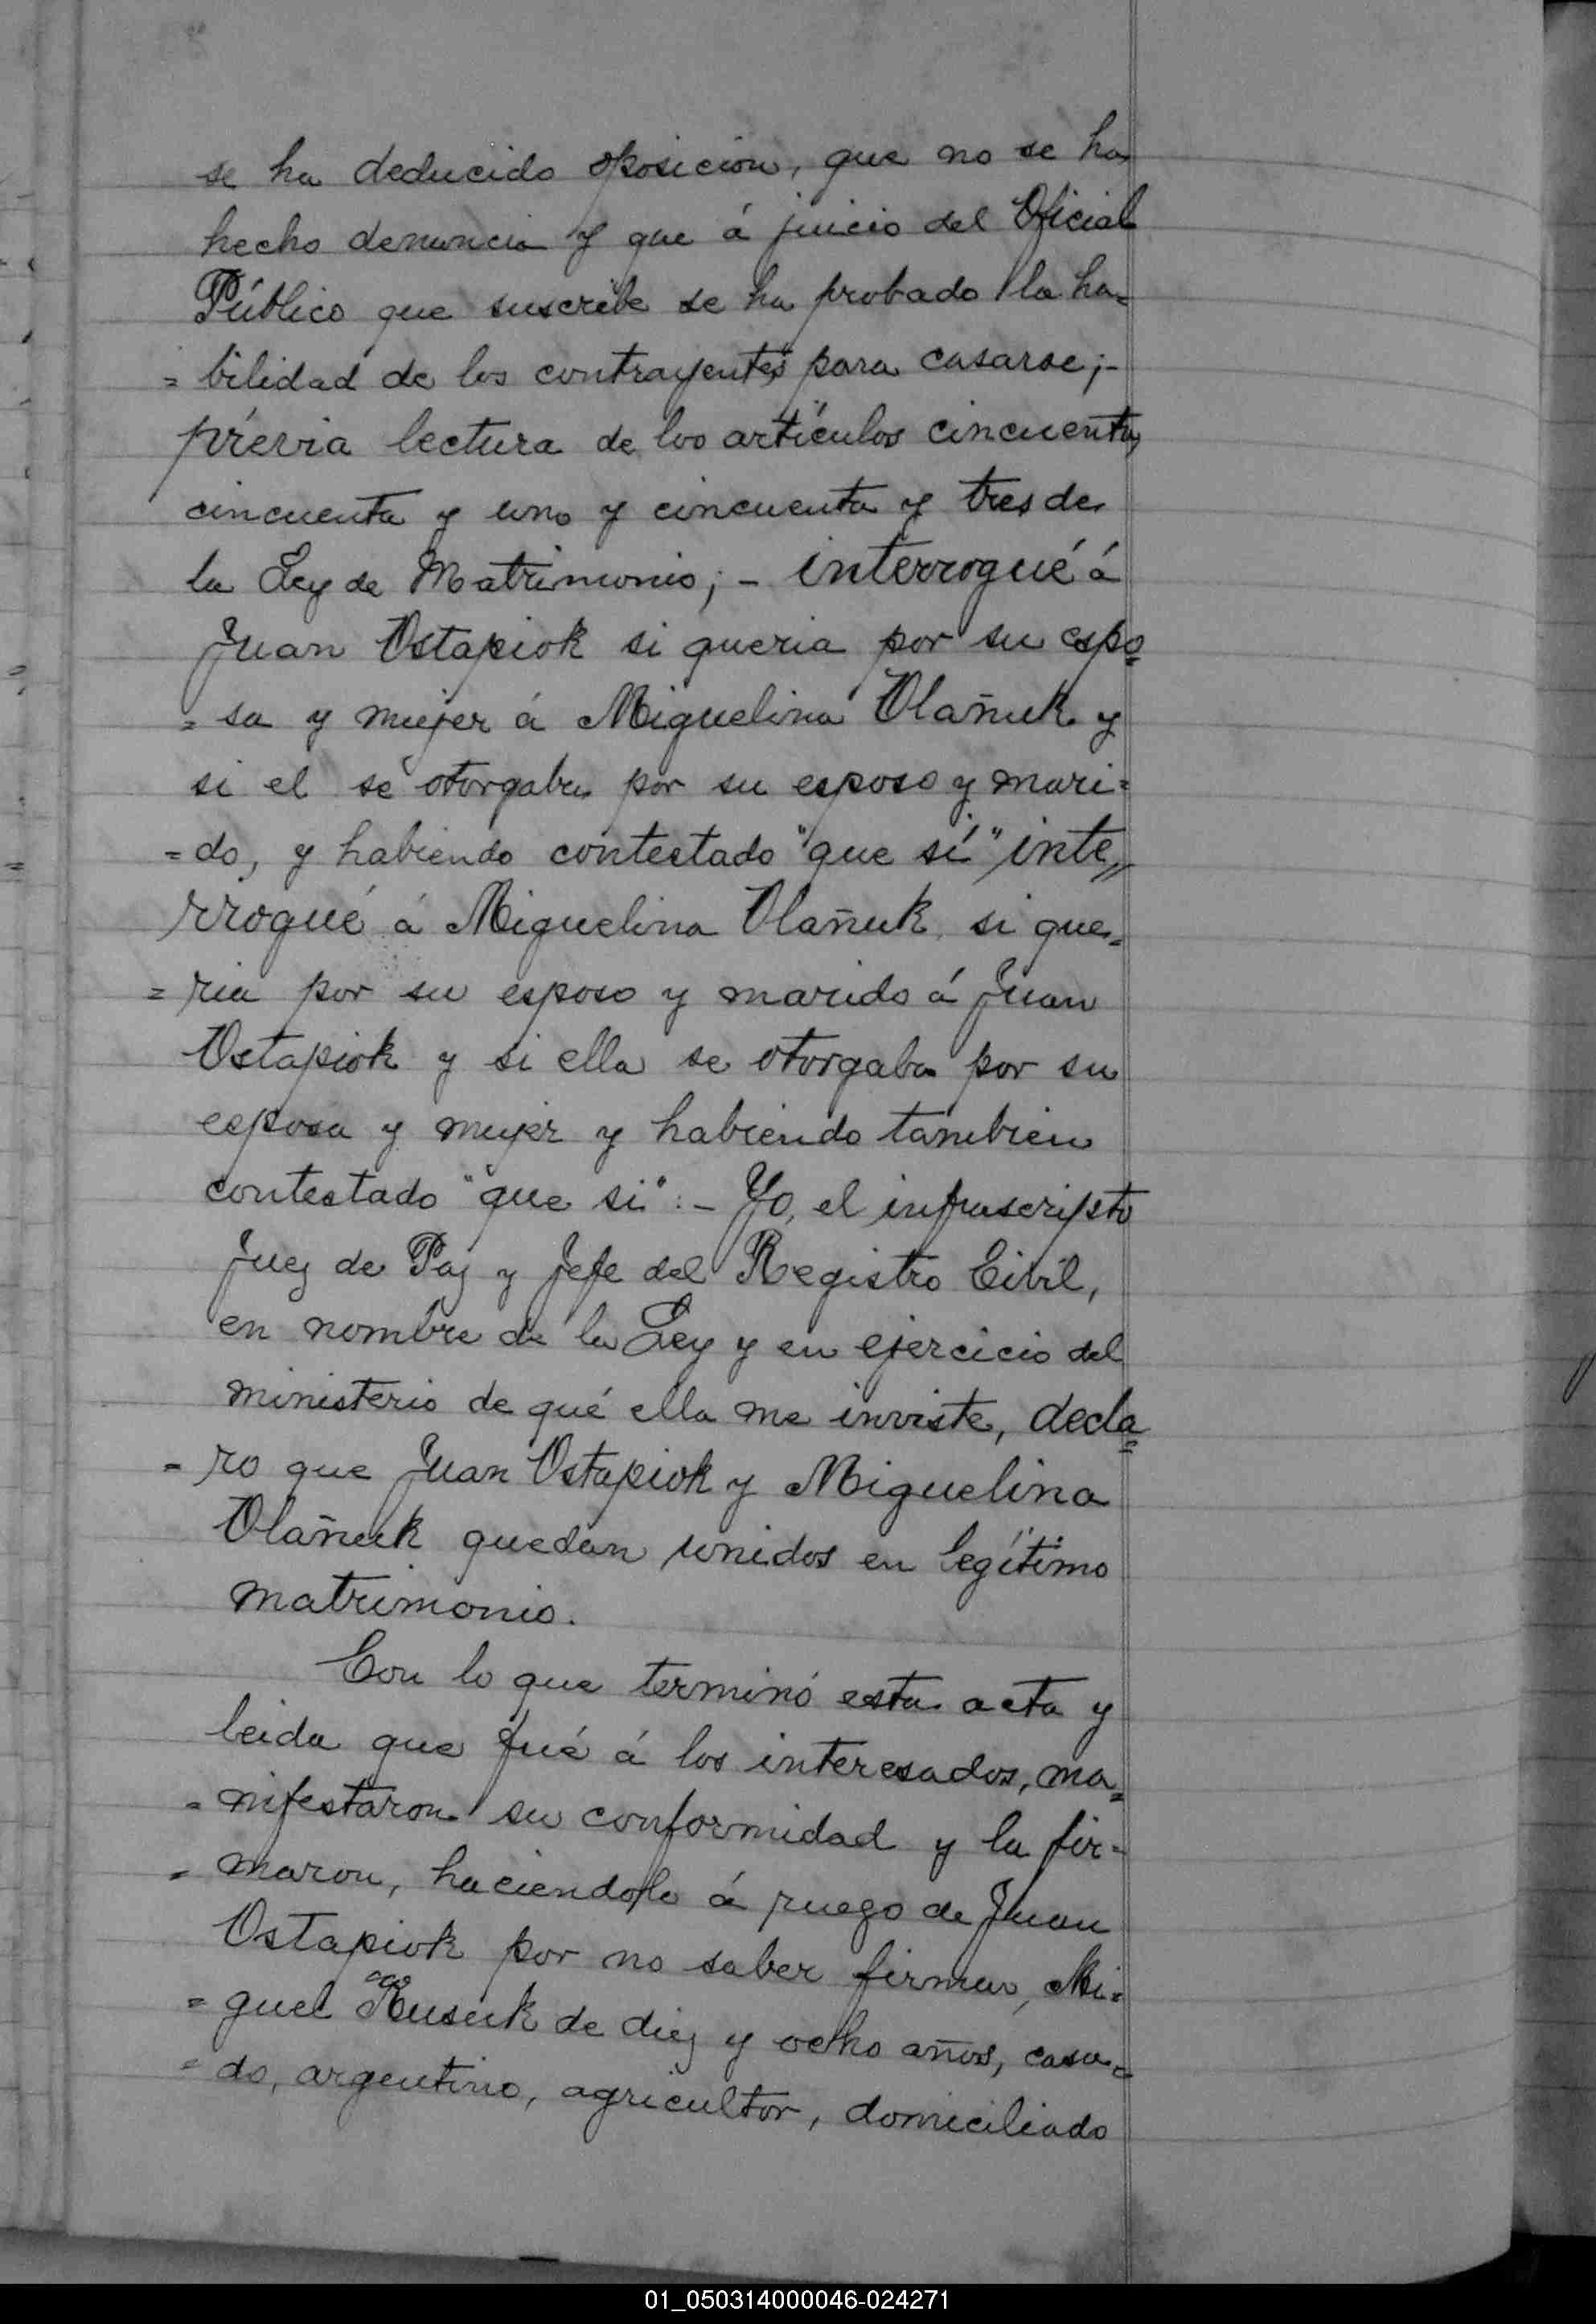 se ha deducido oposicion, que no se ha
hecho denuncia y que á juicio del Oficial
Público que suscribe se ha probado la ha=
=bilidad de los contrayentes para casarse;-
prévia lectura de los artículos cincuenta,
cincuenta y uno y cincuenta y tres de
la Ley de Matrimonio; - interrogué á
Juan Ostapiok si queria por su espo=
=sa y mujer á Miguelina Olañuk y
si el se otorgaba por su esposo y mari=
=do, y habiendo contestado "que sí" inte,,
rrogué á Miguelina Olañuk si que=
=ria por su esposo y marido á Juan
Ostapiok y si ella se otorgaba por su
esposa y mujer y habiendo tambien
contestado "que si": - Yo, el infrascripto
Juez de Paz y Jefe del Registro Civil,
en nombre de la Ley y en ejercicio del
ministerio de qué ella me inviste, decla=
=ro que Juan Ostapiok y Miguelina
Olañuk quedan unidos en legítimo
matrimonio.
Con lo que terminó esta acta y
leida que fué á los interesados, ma=
=nifestaron su conformidad y la fir=
=maron, haciendolo á ruego de Juan
Ostapiok por no saber firmar, Mi=
=guel Rusuk de diez y ocho años, casa=
=do, argentino, agricultor, domiciliado
01_050314000046-024271